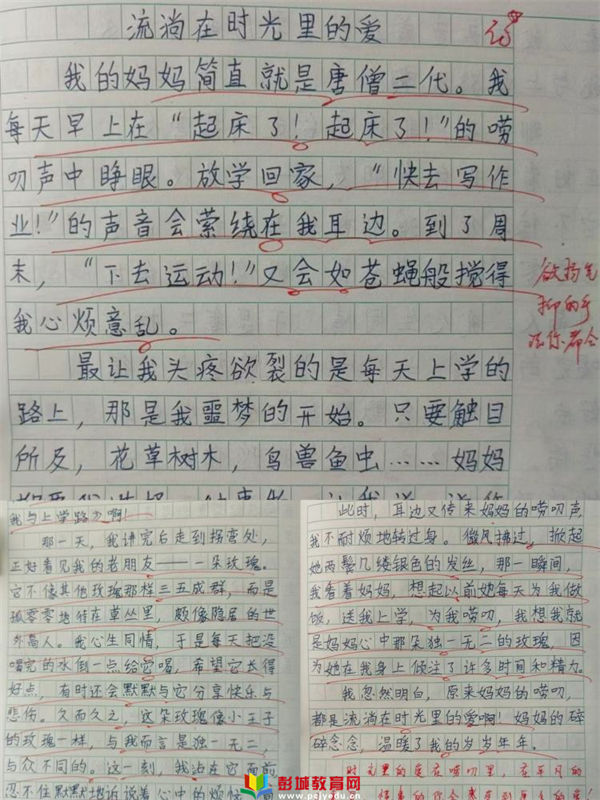 流淌在时光里的爱
我的妈妈简直就是唐僧二代。我
每天早上在“起床了！起床了！”的唠
叨声中睁眼。放学回家，“快去写作
业！”的声音会萦绕在我耳边。到了周
末，“下去运动！”又会如苍蝇般搅得
我心烦意乱。
欲扬先
抑的手
法你都会
最让我头疼欲裂的是每天上学的
路上，那是我噩梦的开始。只要触目
所及，花草树木，鸟兽鱼虫……妈妈
我与上学路少啊！
那一天，我讲完后走到拐弯处，
正好看见我的老朋友——一朵玫瑰。
它不像其他玫瑰那样三五成群，而是
孤零零地待在草丛里，颇像隐居的世
外高人。我心生同情，于是每天把没
喝完的水倒一点给它喝，希望它长得
好点，有时还会默默与它分享快乐与
悲伤。久而久之，这朵玫瑰像小王子
的玫瑰一样，与我而言是独一无二，
与众不同的。这一刻，我站在它面前
忍不住默默地诉说着心中的烦恼
此时，耳边又传来妈妈的唠叨声
我不耐烦地转过身。微风拂过，掀起
她两鬓几缕银色的发丝，那一瞬间，
我看着妈妈，想起以前她每天为我做
饭，送我上学，为我唠叨，我想我就
是妈妈心中那朵独一无二的玫瑰，因
为她在我身上倾注了许多时间和精力。
我忽然明白，原来妈妈的唠叨，
都是流淌在时光里的爱啊！妈妈的碎
碎念念，温暖了我的岁岁年年。
时光里的爱在唠叨里，在平凡的
彭城教育网
www.pcjyedu.cn